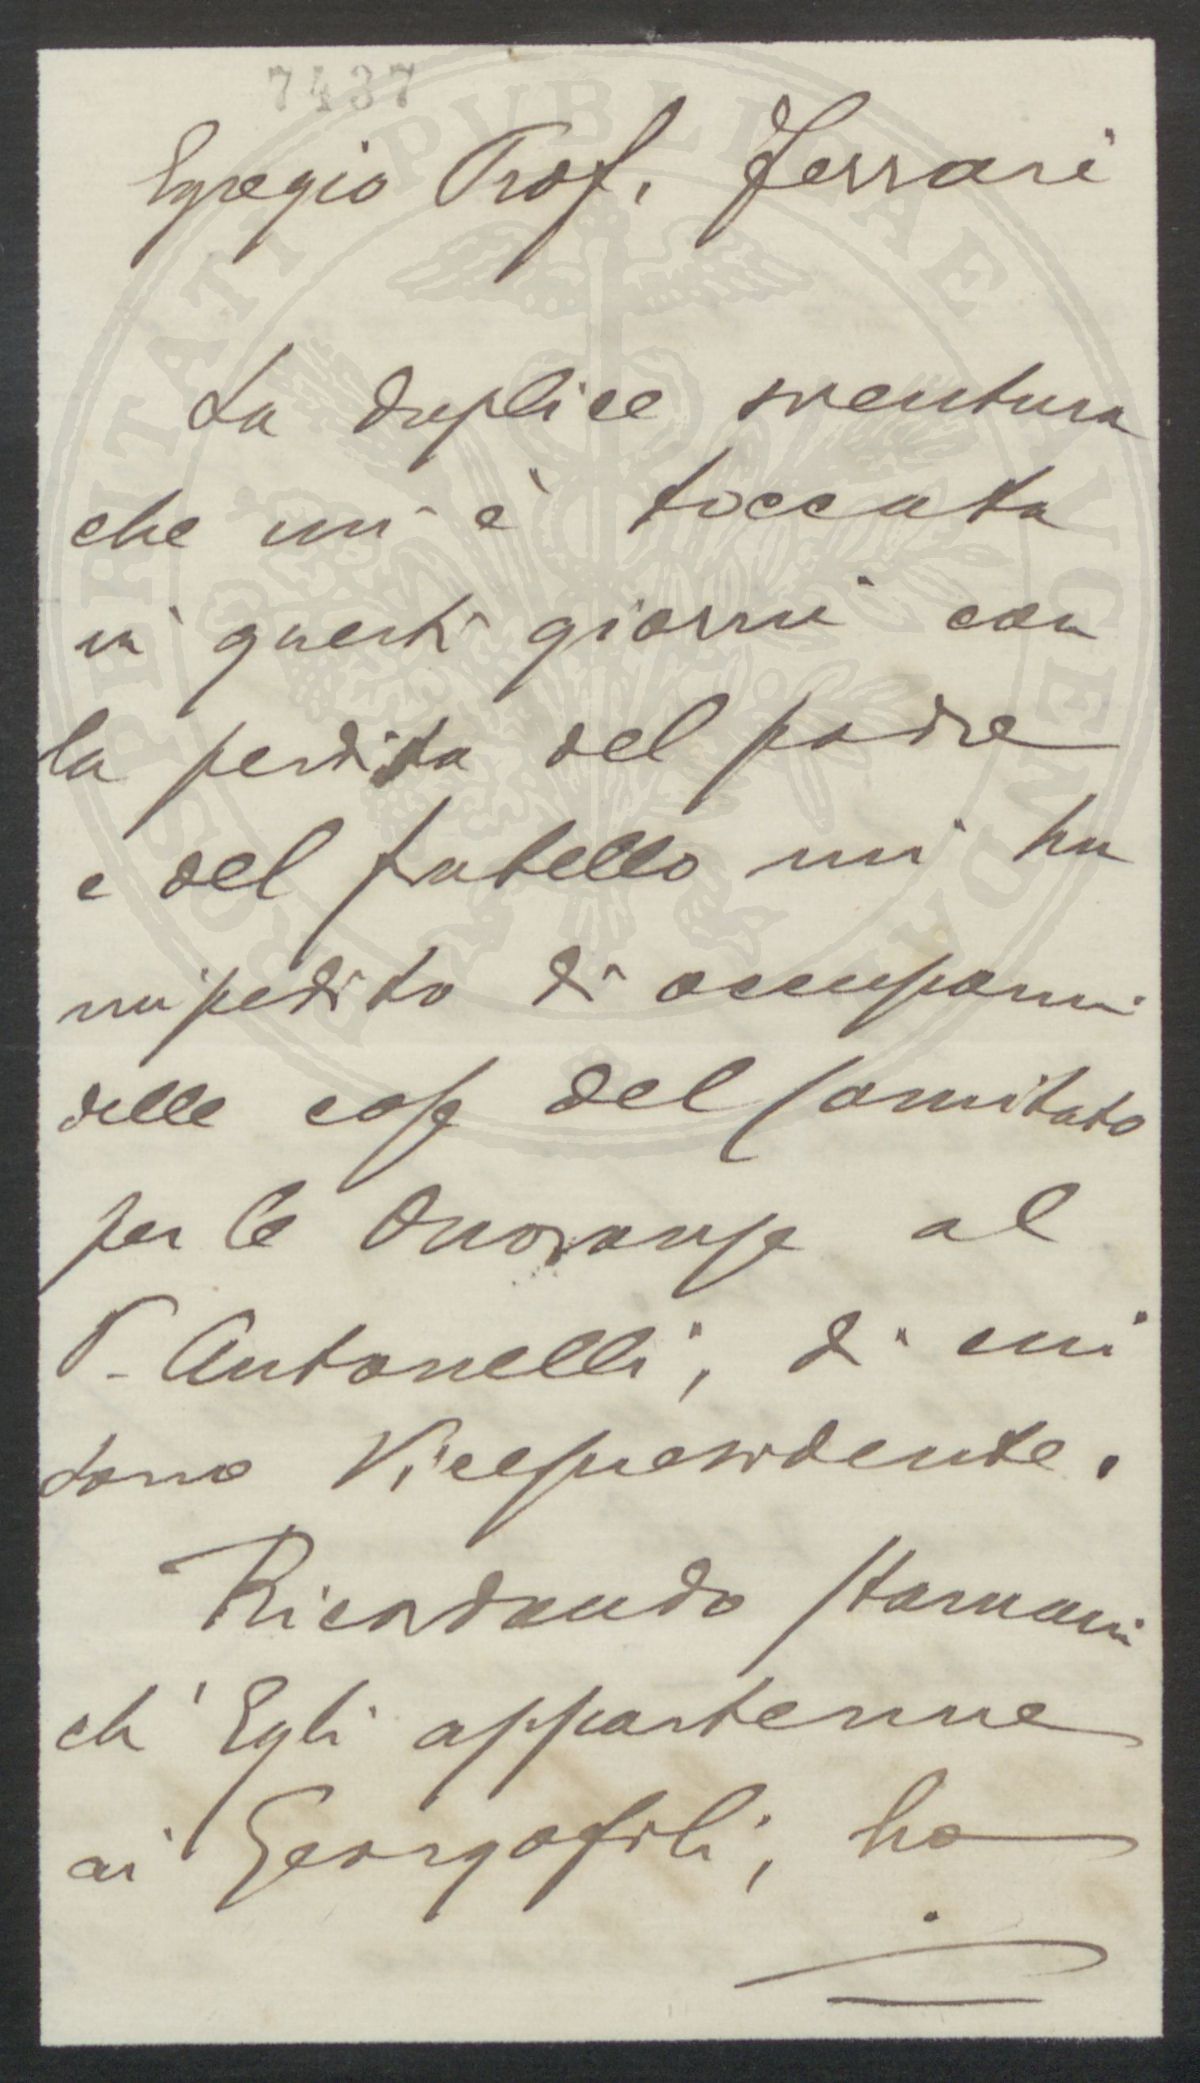 7437
Egregio Prof. Ferrari
La duplice sventura
che mi è toccata
in questi giorni con
la perdita del padre
e del fratello mi ha
impedito di occuparmi
delle cose del Comitato
per le Onoranze al
P. Antonelli, di cui
sono Vicepresidente.
Ricordando stamani
ch'Egli appartenne
ai Georgofili, ho
PROSPERITATI PUBLICAE AUGENDAE